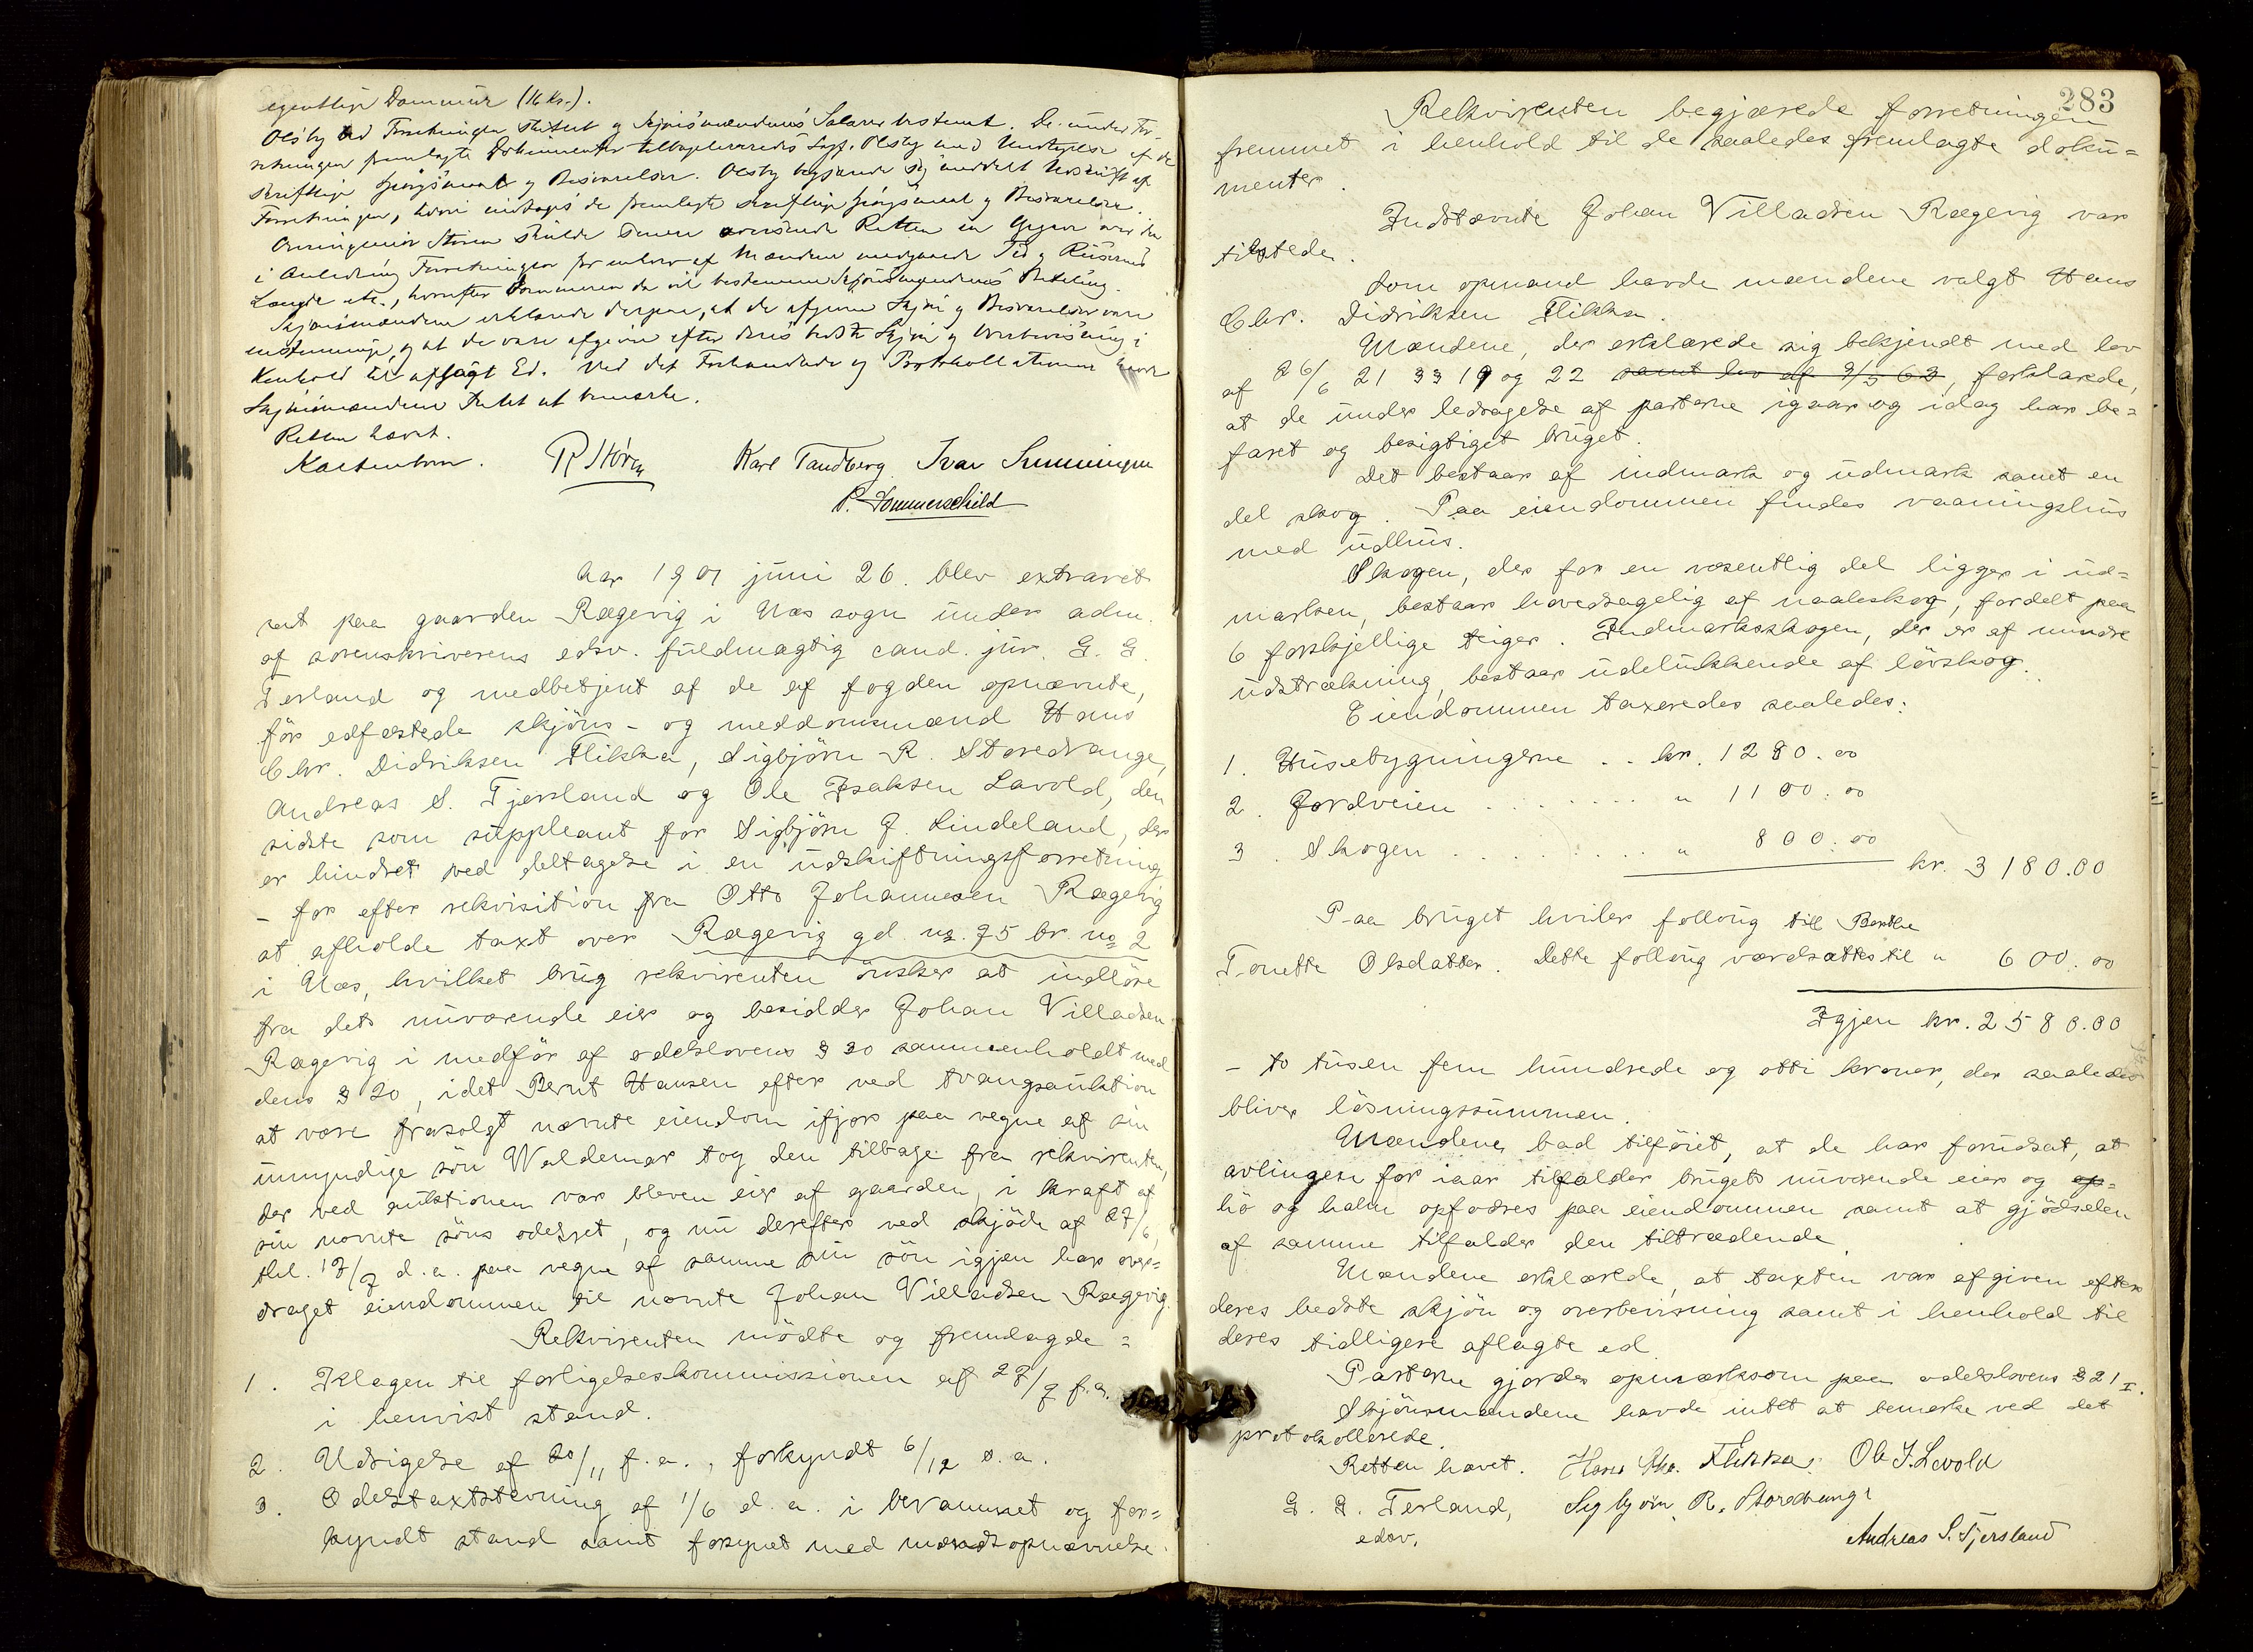 egentlige Dommere (16 Kr.).
Olsby ved Forretningen sluttet og Skjønsmændenes Salarer bestemt. De under For-
retningen fremlagte Dokumenter tilbageleveredes Sagf. Olsby med Undtagelse af de
skriftlige Spørgsmaal og Besvarelser. Olsby begjærede sig meddelt Udskrift af
Forretningen, hvori indtages de fremlagte skriftlige Spørgsmaal og Besvarelser.
Overingeniør Støren skulde senere oversende Retten en Opgave over den
i Anledning Forretningen for enhver af Mændene medgaaede Tid og Reisernes
Længde etc., hvorefter Dommeren da vil bestemme Skjønsmændenes Betaling.
Skjønsmændene erklærede derpaa, at de afgivne Skjøn og Besvarelser vare
enstemmige, og at de vare afgivne efter deres bedste Skjøn og Overbevisning i
Henhold til aflagt Ed. Ved det Forhandlede og Protokollationen havde
Skjønsmændene Intet at bemærke.
Retten hævet.
R Støren Karl Tandberg Ivar
P. Sommerschild
Aar 1901 juni 26. blev extraret
sat paa gaarden Rægevig i Næs sogn under adm.
af sorenskriverens edsv. fuldmægtig cand. jur. G. G.
Terland og medbetjent af de af fogden opnævnte,
før edfæstede skjøns- og meddomsmænd Hans
Chr. Didriksen Flikka, Sigbjørn R. Storedrange,
Andreas S. Tjersland og Ole Isaksen Lavold, den
sidste som suppleant for Sigbjørn J. Lindeland, der
er hindret ved deltagelse i en udskiftningsforretning
- for efter rekvisition fra Otto Johannesen Rægevig
at afholde taxt over Rægevig gd. no. 75 br. no 2
i Næs, hvilket brug rekvirenten ønsker at indløse
fra dets nuværende eier og besidder Johan Villadsen
Rægevig i medfør af odelslovens § 30 sammenholdt med
dens § 20, idet Bernt Hansen efter ved tvangsauktion
at være frasolgt nævnte eiendom ifjor paa vegne af sin
umyndige søn Waldemar tog den tilbage fra rekvirenten,
der ved auktionen var bleven eier af gaarden, i kraft af
sin nævnte søns odelsret, og nu derefter ved skjøde af 27/6,
thl. 17/7 d. a. paa vegne af samme sin søn igjen har over=
draget eiendommen til nævnte Johan Villadsen Rægevig.
Rekvirenten mødte og fremlagde =
1. Klagen til forligelseskommissionen af 27/7 f. a.
i henvist stand.
2. Udsigelse af 20/11 f. a., forkyndt 6/12 s. a.
3. Odelstaxtstevning af 1/6 d. a. i berammet og for=
kyndt stand samt forsynet med mændsopnævnelse.
283
Rekvirenten begjærede forretningen
fremmet i henhold til de saaledes fremlagte doku=
menter.
Indstævnte Johan Villadsen Rægevig var
tilstede.
Som opmand havde mændene valgt Hans
Chr. Didriksen Flikka.
Mændene, der erklærede sig bekjendt med lov
af 26/6 21 §§ 19 og 22 samt lov af 9/5 63, forklarede,
at de under ledsagelse af parterne igaar og idag har be=
faret og besigtiget bruget.
Det bestaar af indmark og udmark samt en
del skog. Paa eiendommen findes vaaningshus
med udhus.
Skogen, der for en væsentlig del ligger i ud=
marken, bestaar hovedsagelig af naaleskog, fordelt paa
6 forskjellige teiger. Indmarksskogen, der er af mindre
udstrækning, bestaar udelukkende af løvskog.
Eiendommen taxeredes saaledes:
1. Husebygningerne .. kr. 1280.00
2. Jordveien ........ " 1100.00
3. Skogen .......... " 800.00
kr. 3180.00
Paa bruget hviler folloug till Berthe
Tonette Olsdatter. Dette folloug værdsættes til " 600.00
Igjen kr. 2580.00
- to tusen fem hundrede og otti kroner, der saaledes
bliver løsningssummen.
Mændene bad tilføiet, at de har forudsat, at
avlingen for iaar tilfalder brugets nuværende eier og op=
hø og halm opfodres paa eiendommen samt at gjødselen
af samme tilfalder den tiltrædende.
Mændene erklærede, at taxten var afgiven efter
deres bedste skjøn og overbevisning samt i henhold til
deres tidligere aflagte ed.
Parterne gjordes opmærksom paa odelslovens § 21 I.
Skjønsmændene havde intet at bemærke ved det
protokollerede.
Retten hævet. Hans Chr. Flikka. Ole I. Lavold
G. G. Terland, Sigbjørn R. Storedrange
edsv. Andreas S. Tjersland